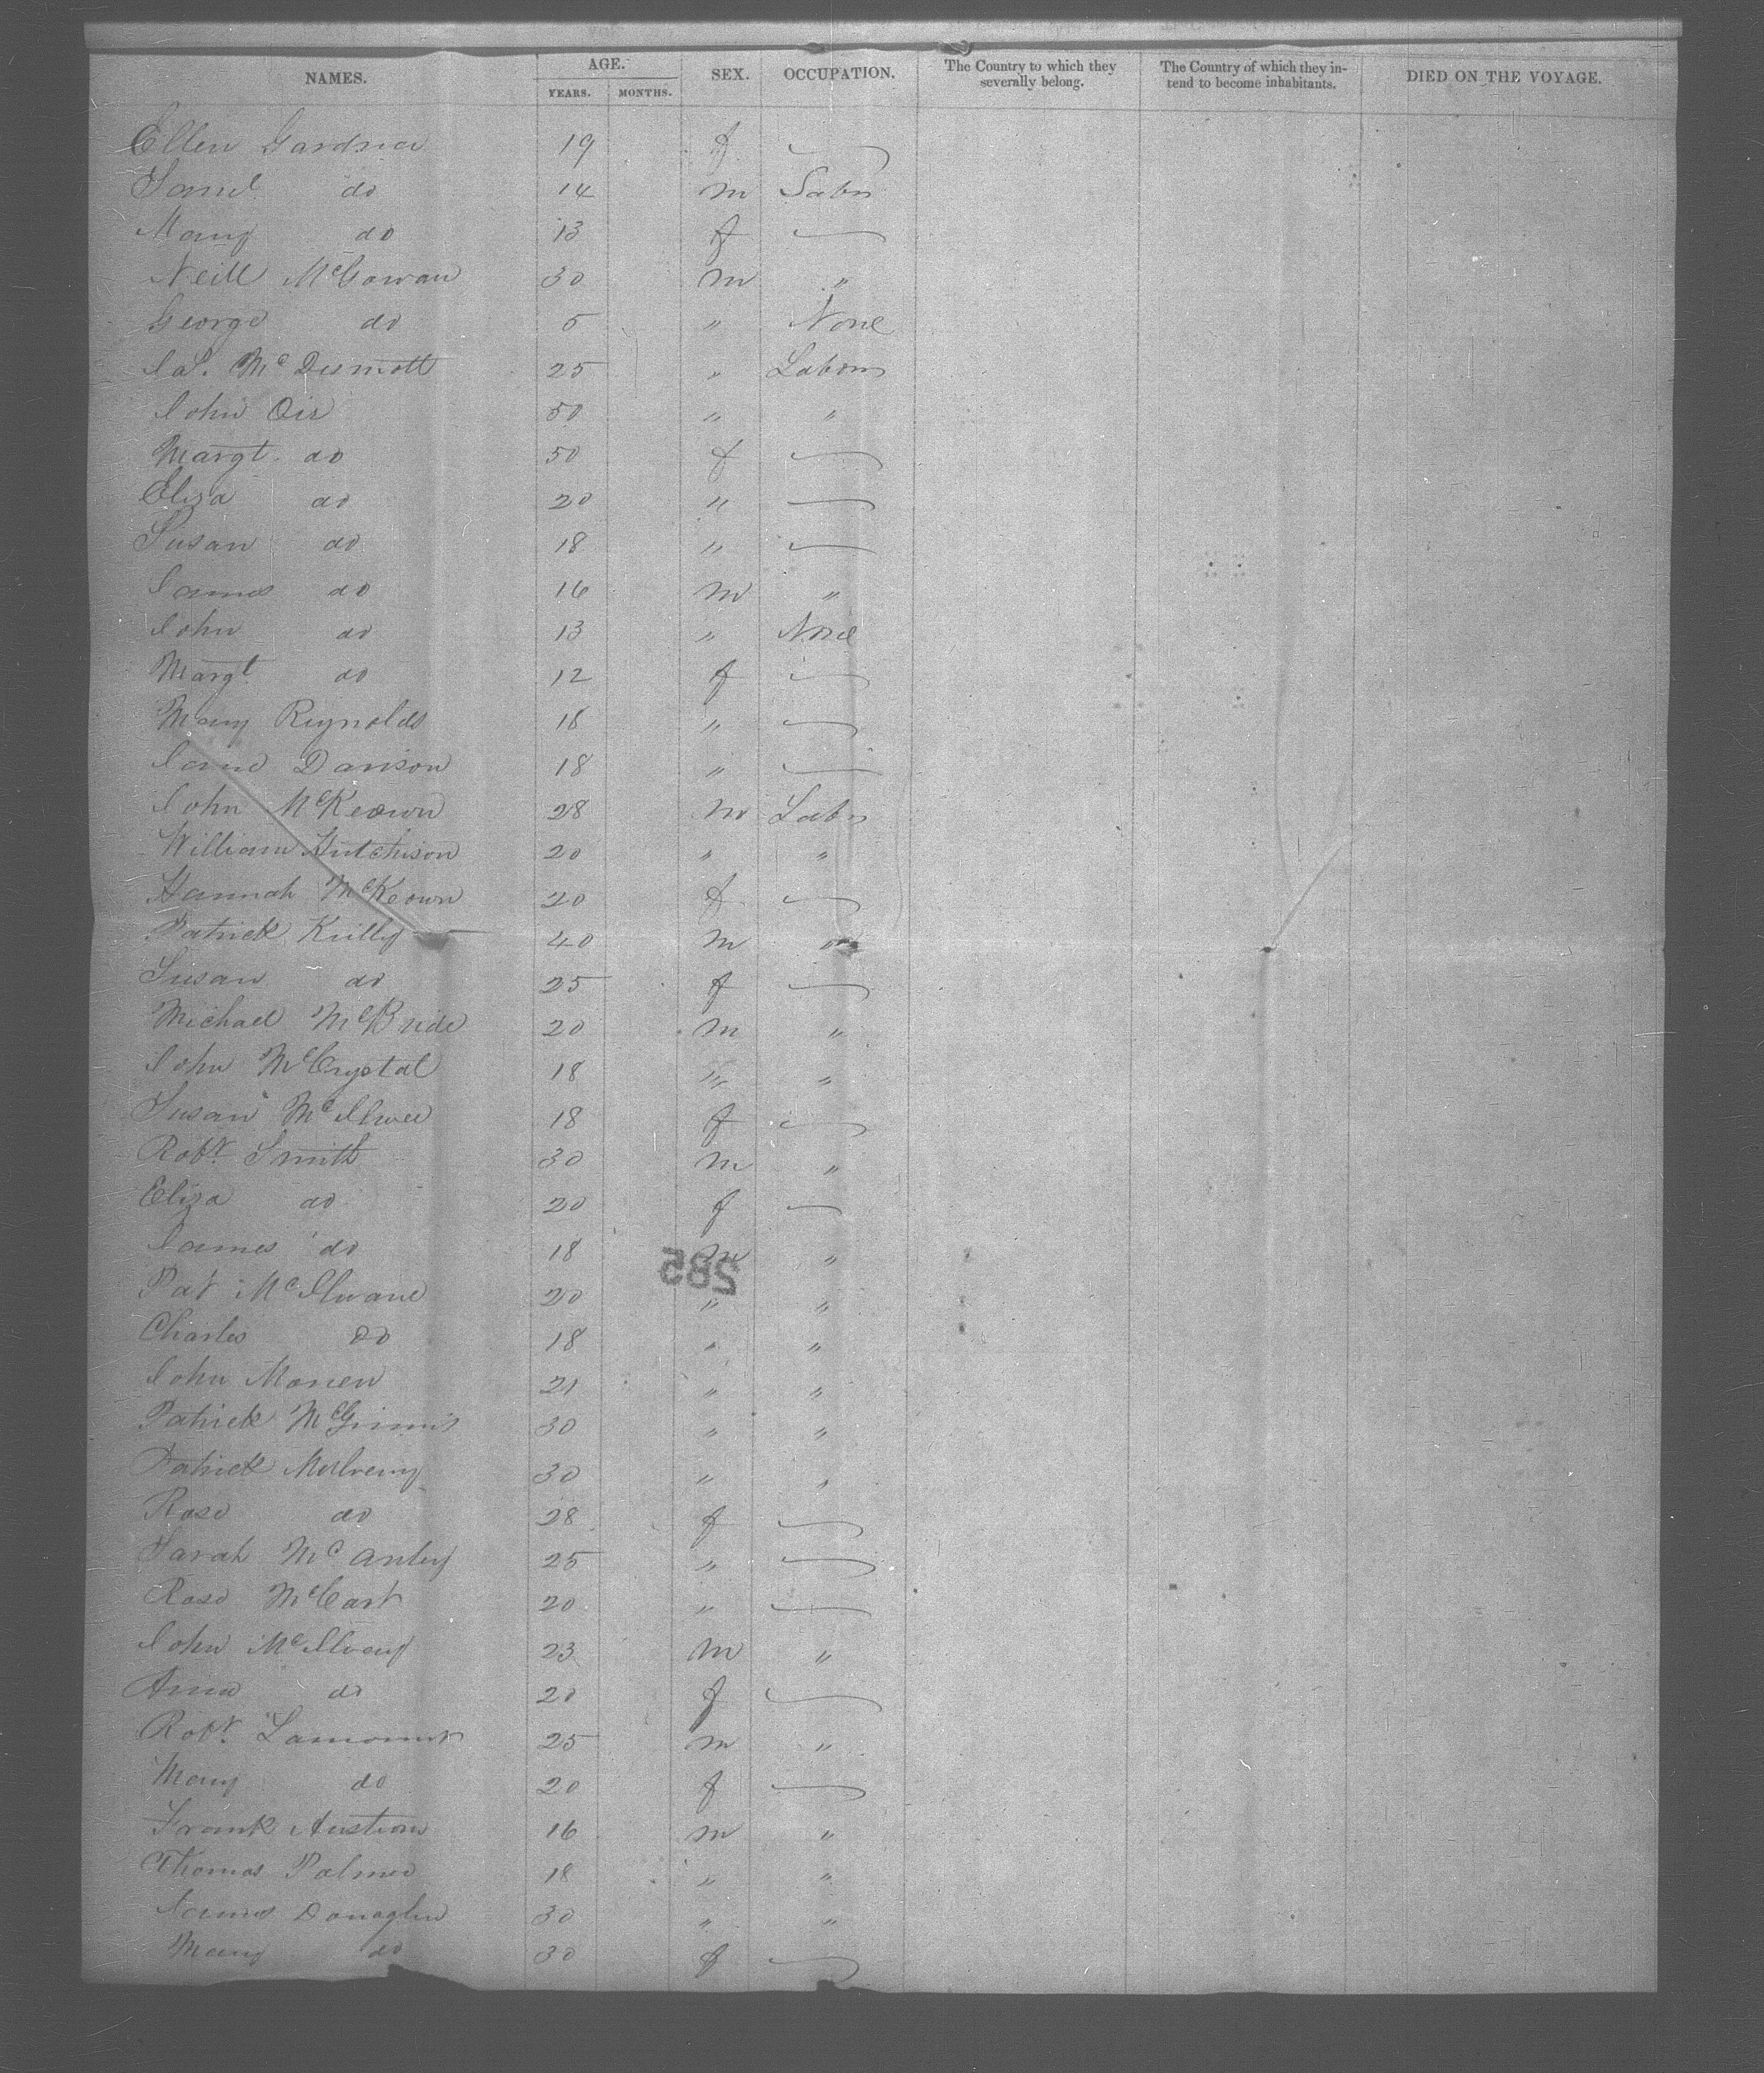 NAMES. AGE. SEX. OCCUPATION. The Country to which they severally belong. The Country of which they intend to become inhabitants. DIED ON THE VOYAGE.
YEARS. MONTHS.
Ellen Gardner 19 f —
Saml do 14 m Labr
Mary do 13 f —
Neill McGowan 30 m "
George do 5 " None
McDermott 25 " Labour
John Orr 50 " "
Margt. do 50 f —
Eliza do 20 " —
Susan do 18 " —
James do 16 m "
John do 13 " None
Margt do 12 f —
Mary Reynolds 18 " —
Jane Davison 18 " —
John McKeown 28 m Labr
William Hutchison 20 " "
Hannah McKeown 20 f —
Patrick Krilly 40 m "
Susan do 25 f —
Michael McBride 20 m "
John McCrystal 18 " "
Susan McIlwee 18 f —
Robt. Smith 30 m "
Eliza do 20 f —
James do 18 m "
285
Pat McIlwane 20 " "
Charles Do 18 " "
John Monen 21 " "
Patrick McGinnis 30 " "
Patrick Mulveny 30 " "
Rose do 28 f —
Sarah McAnley 25 " —
Rose McCart 20 " —
John McIlvany 23 m "
Anna do 20 f —
Robt. Lamount 25 m "
Mary do 20 f —
Frank Austion 16 m "
Thomas Palmer 18 " "
James Donaghu 30 " "
Mary do 30 f —